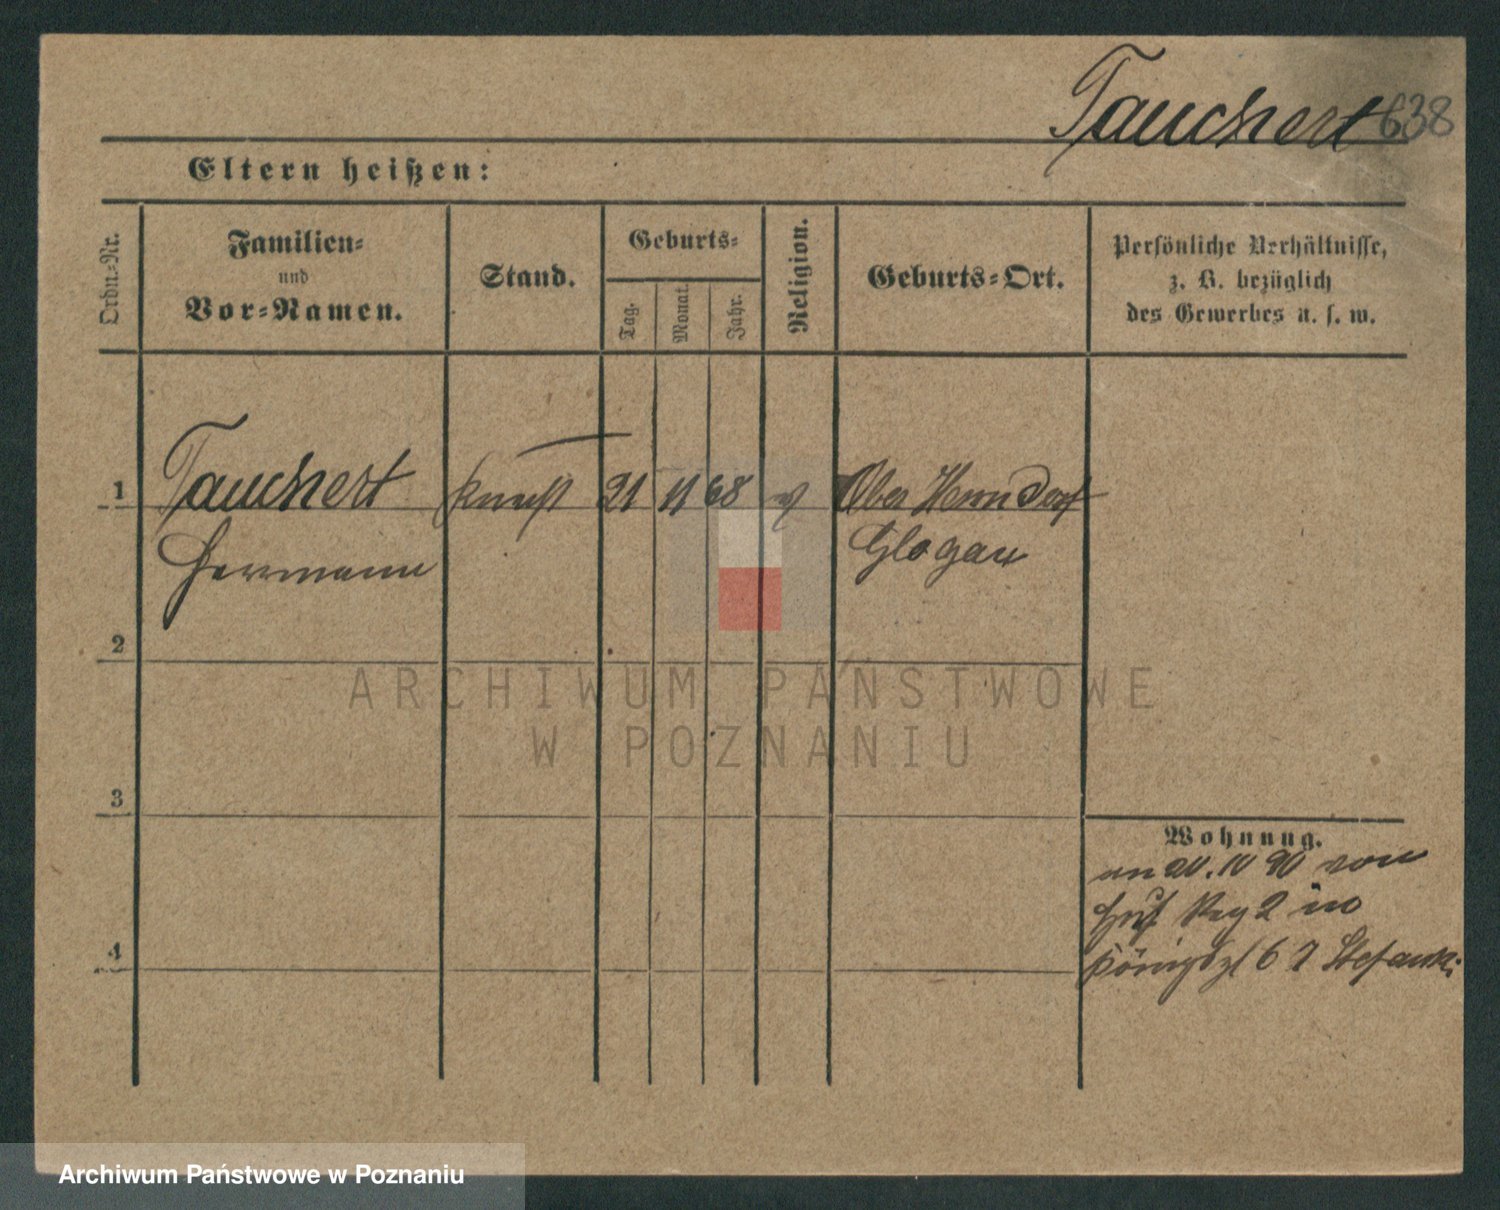 Tauchert 638
Eltern heißen:
Ordn.-Nr.
Familien-
und
Vor-Namen.
Stand.
Geburts-
Tag.
Monat.
Jahr.
Religion.
Geburts-Ort.
Persönliche Verhältnisse,
z. B. bezüglich
des Gewerbes u. s. w.
1 Tauchert 21 11 68 Ober Herrndorf
Hermann Glogau
2
ARCHIWUM PAŃSTWOWE
W POZNANIU
3
Wohnung.
90 von
2 in
Königspl 6 7 Stefanski
4
Archiwum Państwowe w Poznaniu